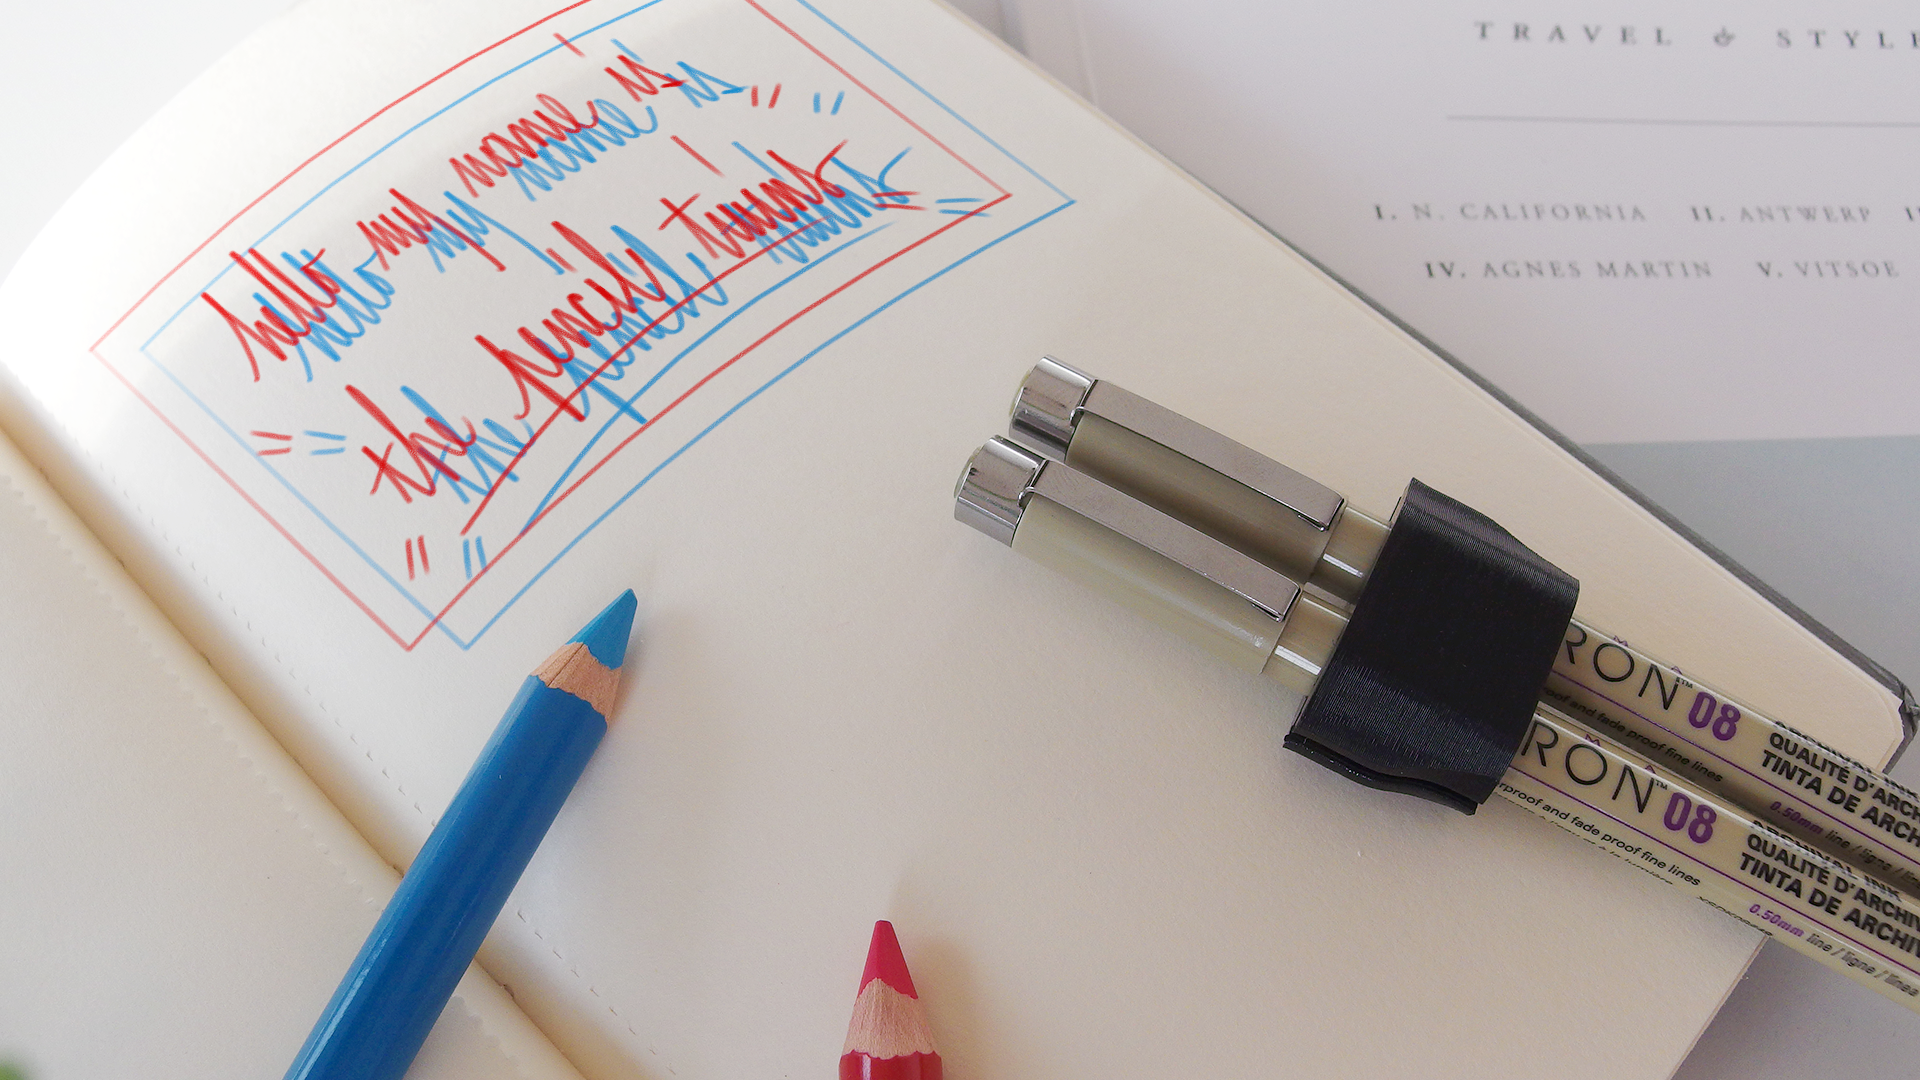 hello my name is
the pencil twins
TRAVEL & STYLE
I. N. CALIFORNIA II. ANTWERP
IV. AGNES MARTIN V. VITSOE
RON™ 08
oof and fade proof fine lines
ARCHIVAL INK
QUALITÉ D'ARCH
TINTA DE ARCH
0.50mm line / ligne /
RON™ 08
rproof and fade proof fine lines
ARCHIVAL INK
QUALITÉ D'ARCHIV
TINTA DE ARCHIV
0.50mm line / ligne / línea